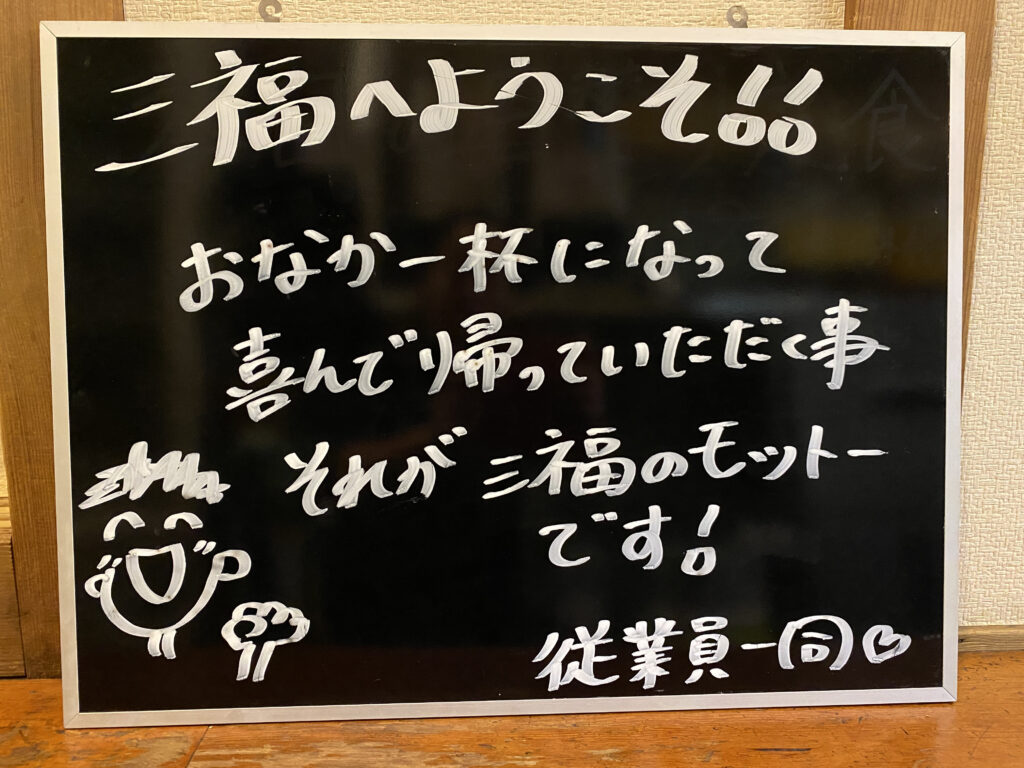 三福へようこそ!!
おなか一杯になって
喜んで帰っていただく事
それが三福のモットー
です!
従業員一同♡